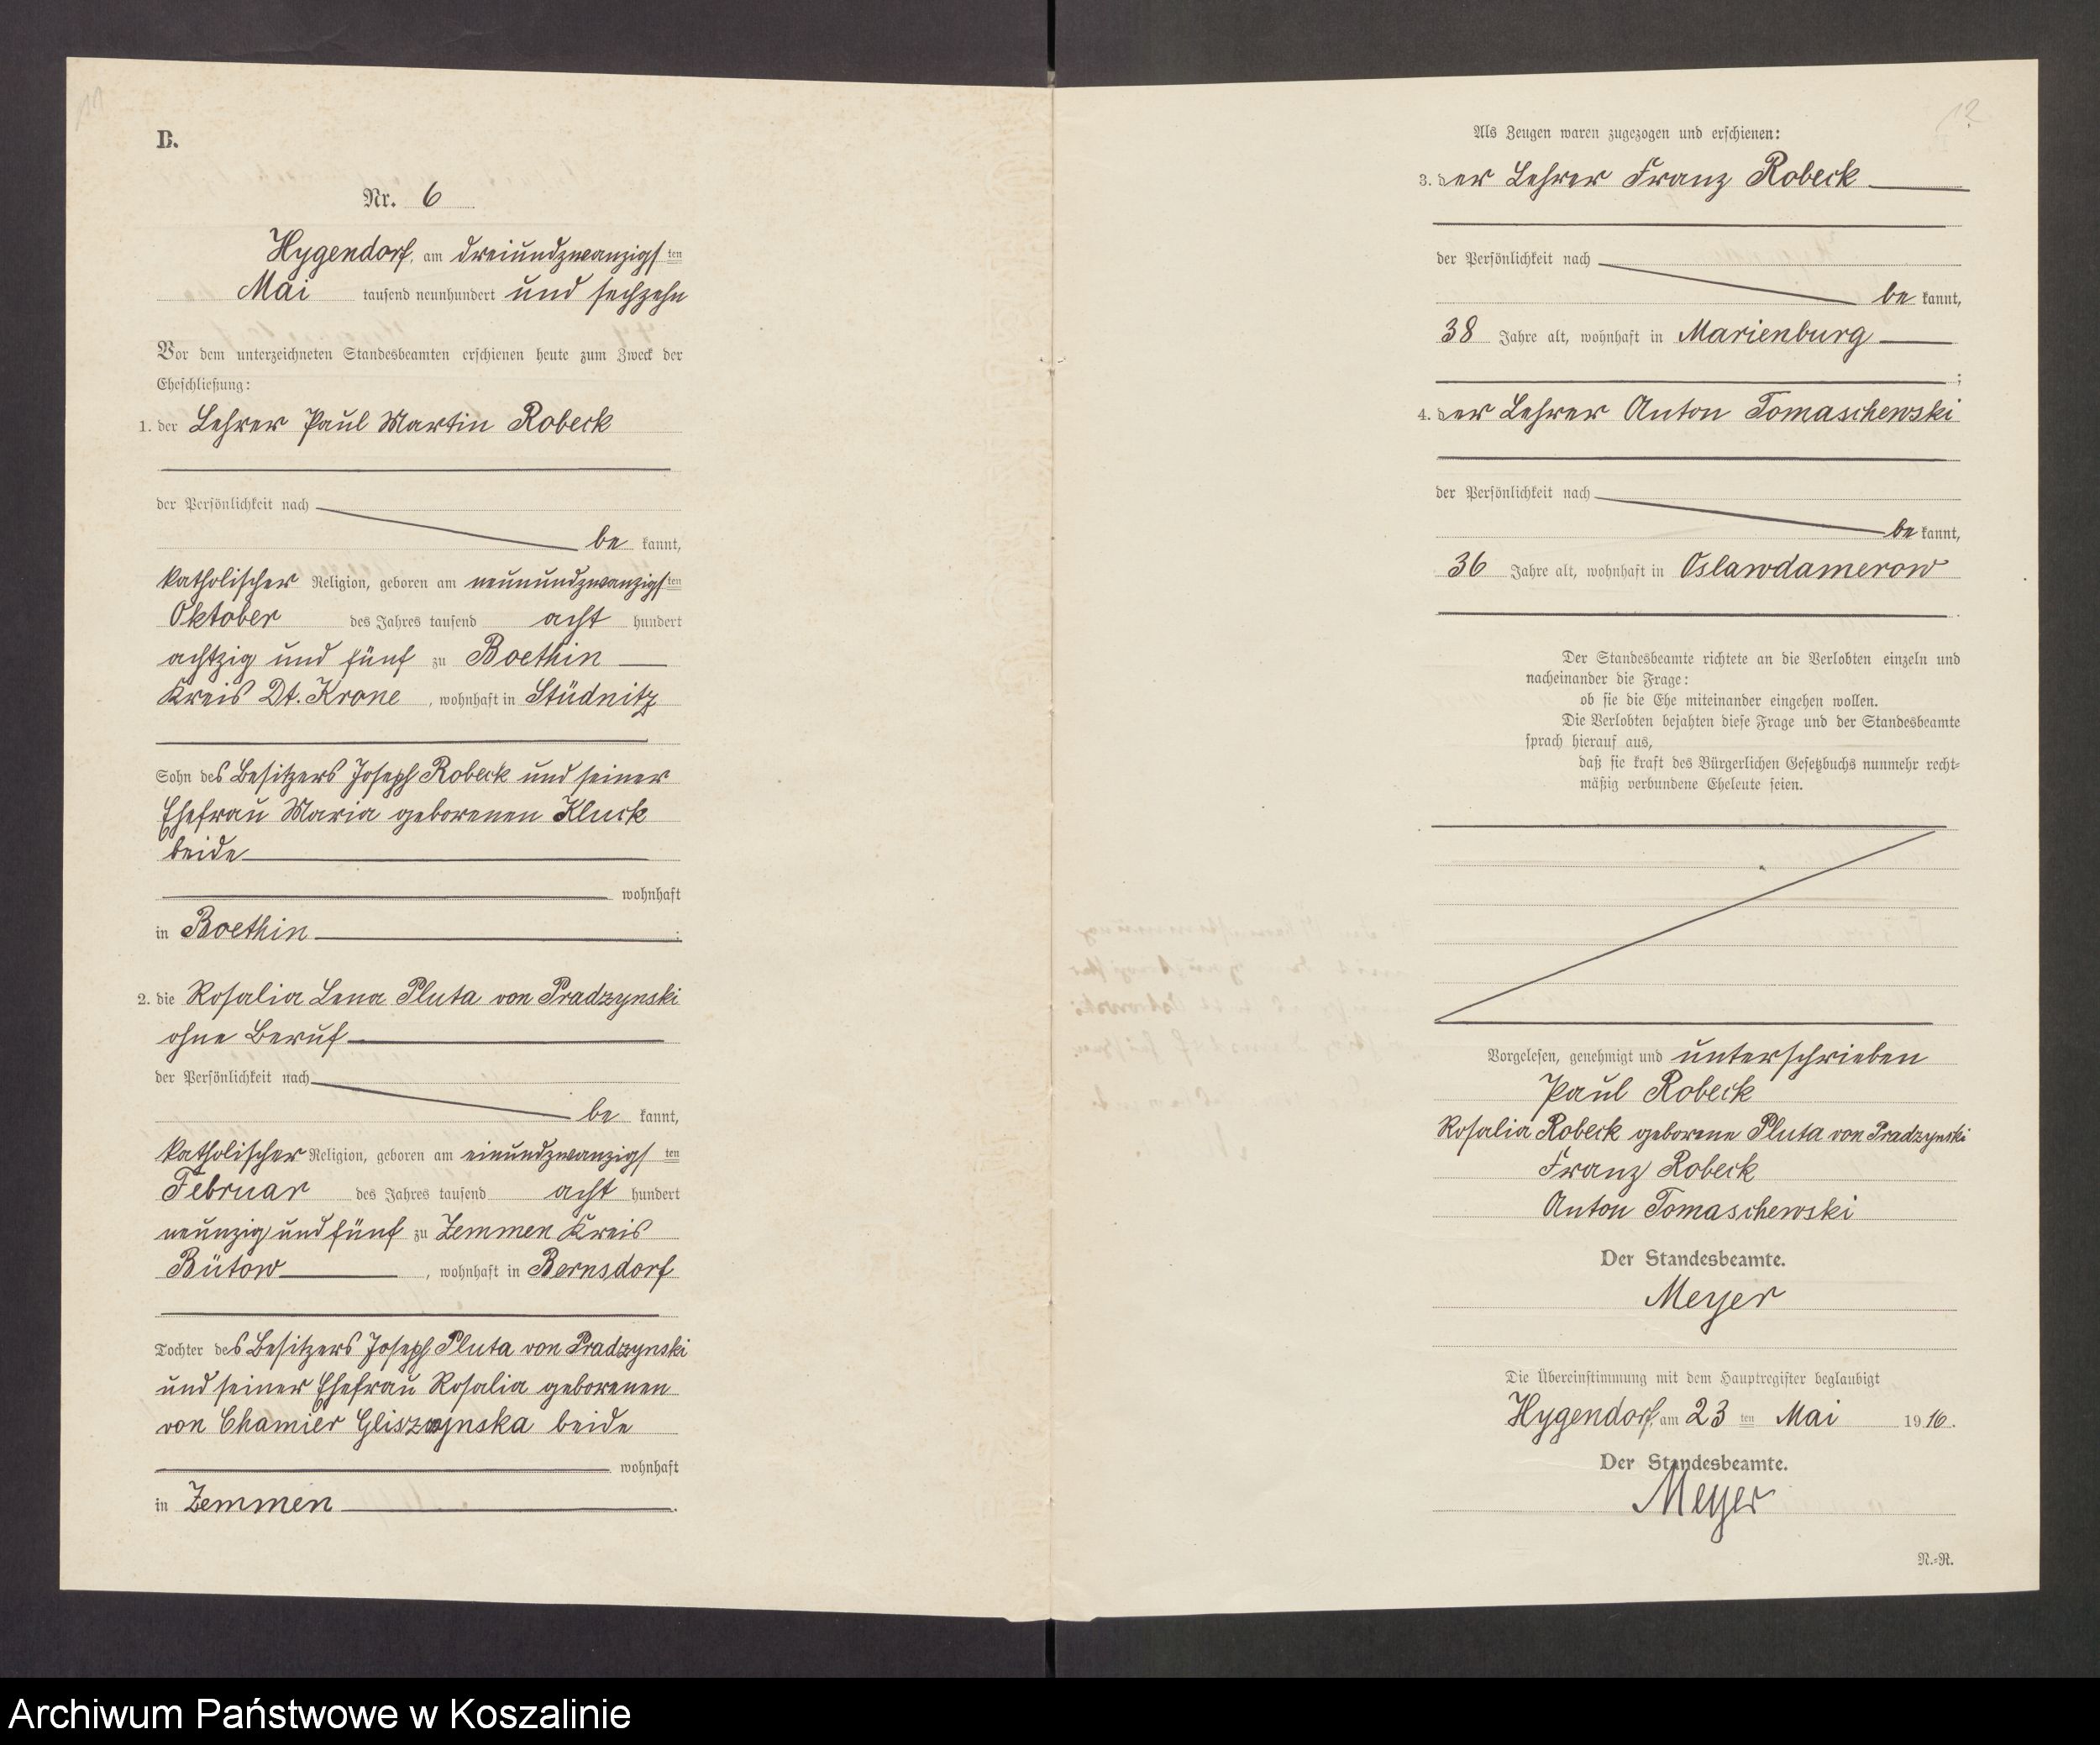 11
B.
Nr. 6
Hygendorf, am dreiundzwanzigsten
Mai tausend neunhundert und sechzehn
Vor dem unterzeichneten Standesbeamten erschienen heute zum Zweck der
Eheschließung:
1. der Lehrer Paul Martin Robeck
der Persönlichkeit nach
be kannt,
katholischer Religion, geboren am neunundzwanzigsten
Oktober des Jahres tausend acht hundert
achtzig und fünf zu Boethin
Kreis Dt. Krone, wohnhaft in Stüdnitz
Sohn des Besitzers Joseph Robeck und seiner
Ehefrau Maria geborenen Kluck
beide
wohnhaft
in Boethin ;
2. die Rosalia Lena Pluta von Pradzynski
ohne Beruf
der Persönlichkeit nach
be kannt,
katholischer Religion, geboren am einundzwanzigsten
Februar des Jahres tausend acht hundert
neunzig und fünf zu Zemmen Kreis
Bütow, wohnhaft in Bernsdorf
Tochter des Besitzers Joseph Pluta von Pradzynski
und seiner Ehefrau Rosalia geborenen
von Chamier Gliszczynska beide
wohnhaft
in Zemmen.
12
Als Zeugen waren zugezogen und erschienen:
3. der Lehrer Franz Robeck
der Persönlichkeit nach
be kannt,
38 Jahre alt, wohnhaft in Marienburg
;
4. der Lehrer Anton Tomaschewski
der Persönlichkeit nach
be kannt,
36 Jahre alt, wohnhaft in Oslawdamerow
.
Der Standesbeamte richtete an die Verlobten einzeln und
nacheinander die Frage:
ob sie die Ehe miteinander eingehen wollen.
Die Verlobten bejahten diese Frage und der Standesbeamte
sprach hierauf aus,
daß sie kraft des Bürgerlichen Gesetzbuchs nunmehr recht-
mäßig verbundene Eheleute seien.
Vorgelesen, genehmigt und unterschrieben
Paul Robeck
Rosalia Robeck geborene Pluta von Pradzynski
Franz Robeck
Anton Tomaschewski
Der Standesbeamte.
Meyer
Die Übereinstimmung mit dem Hauptregister beglaubigt
Hygendorf, am 23 ten Mai 1916.
Der Standesbeamte.
Meyer
N.-R.
Archiwum Państwowe w Koszalinie